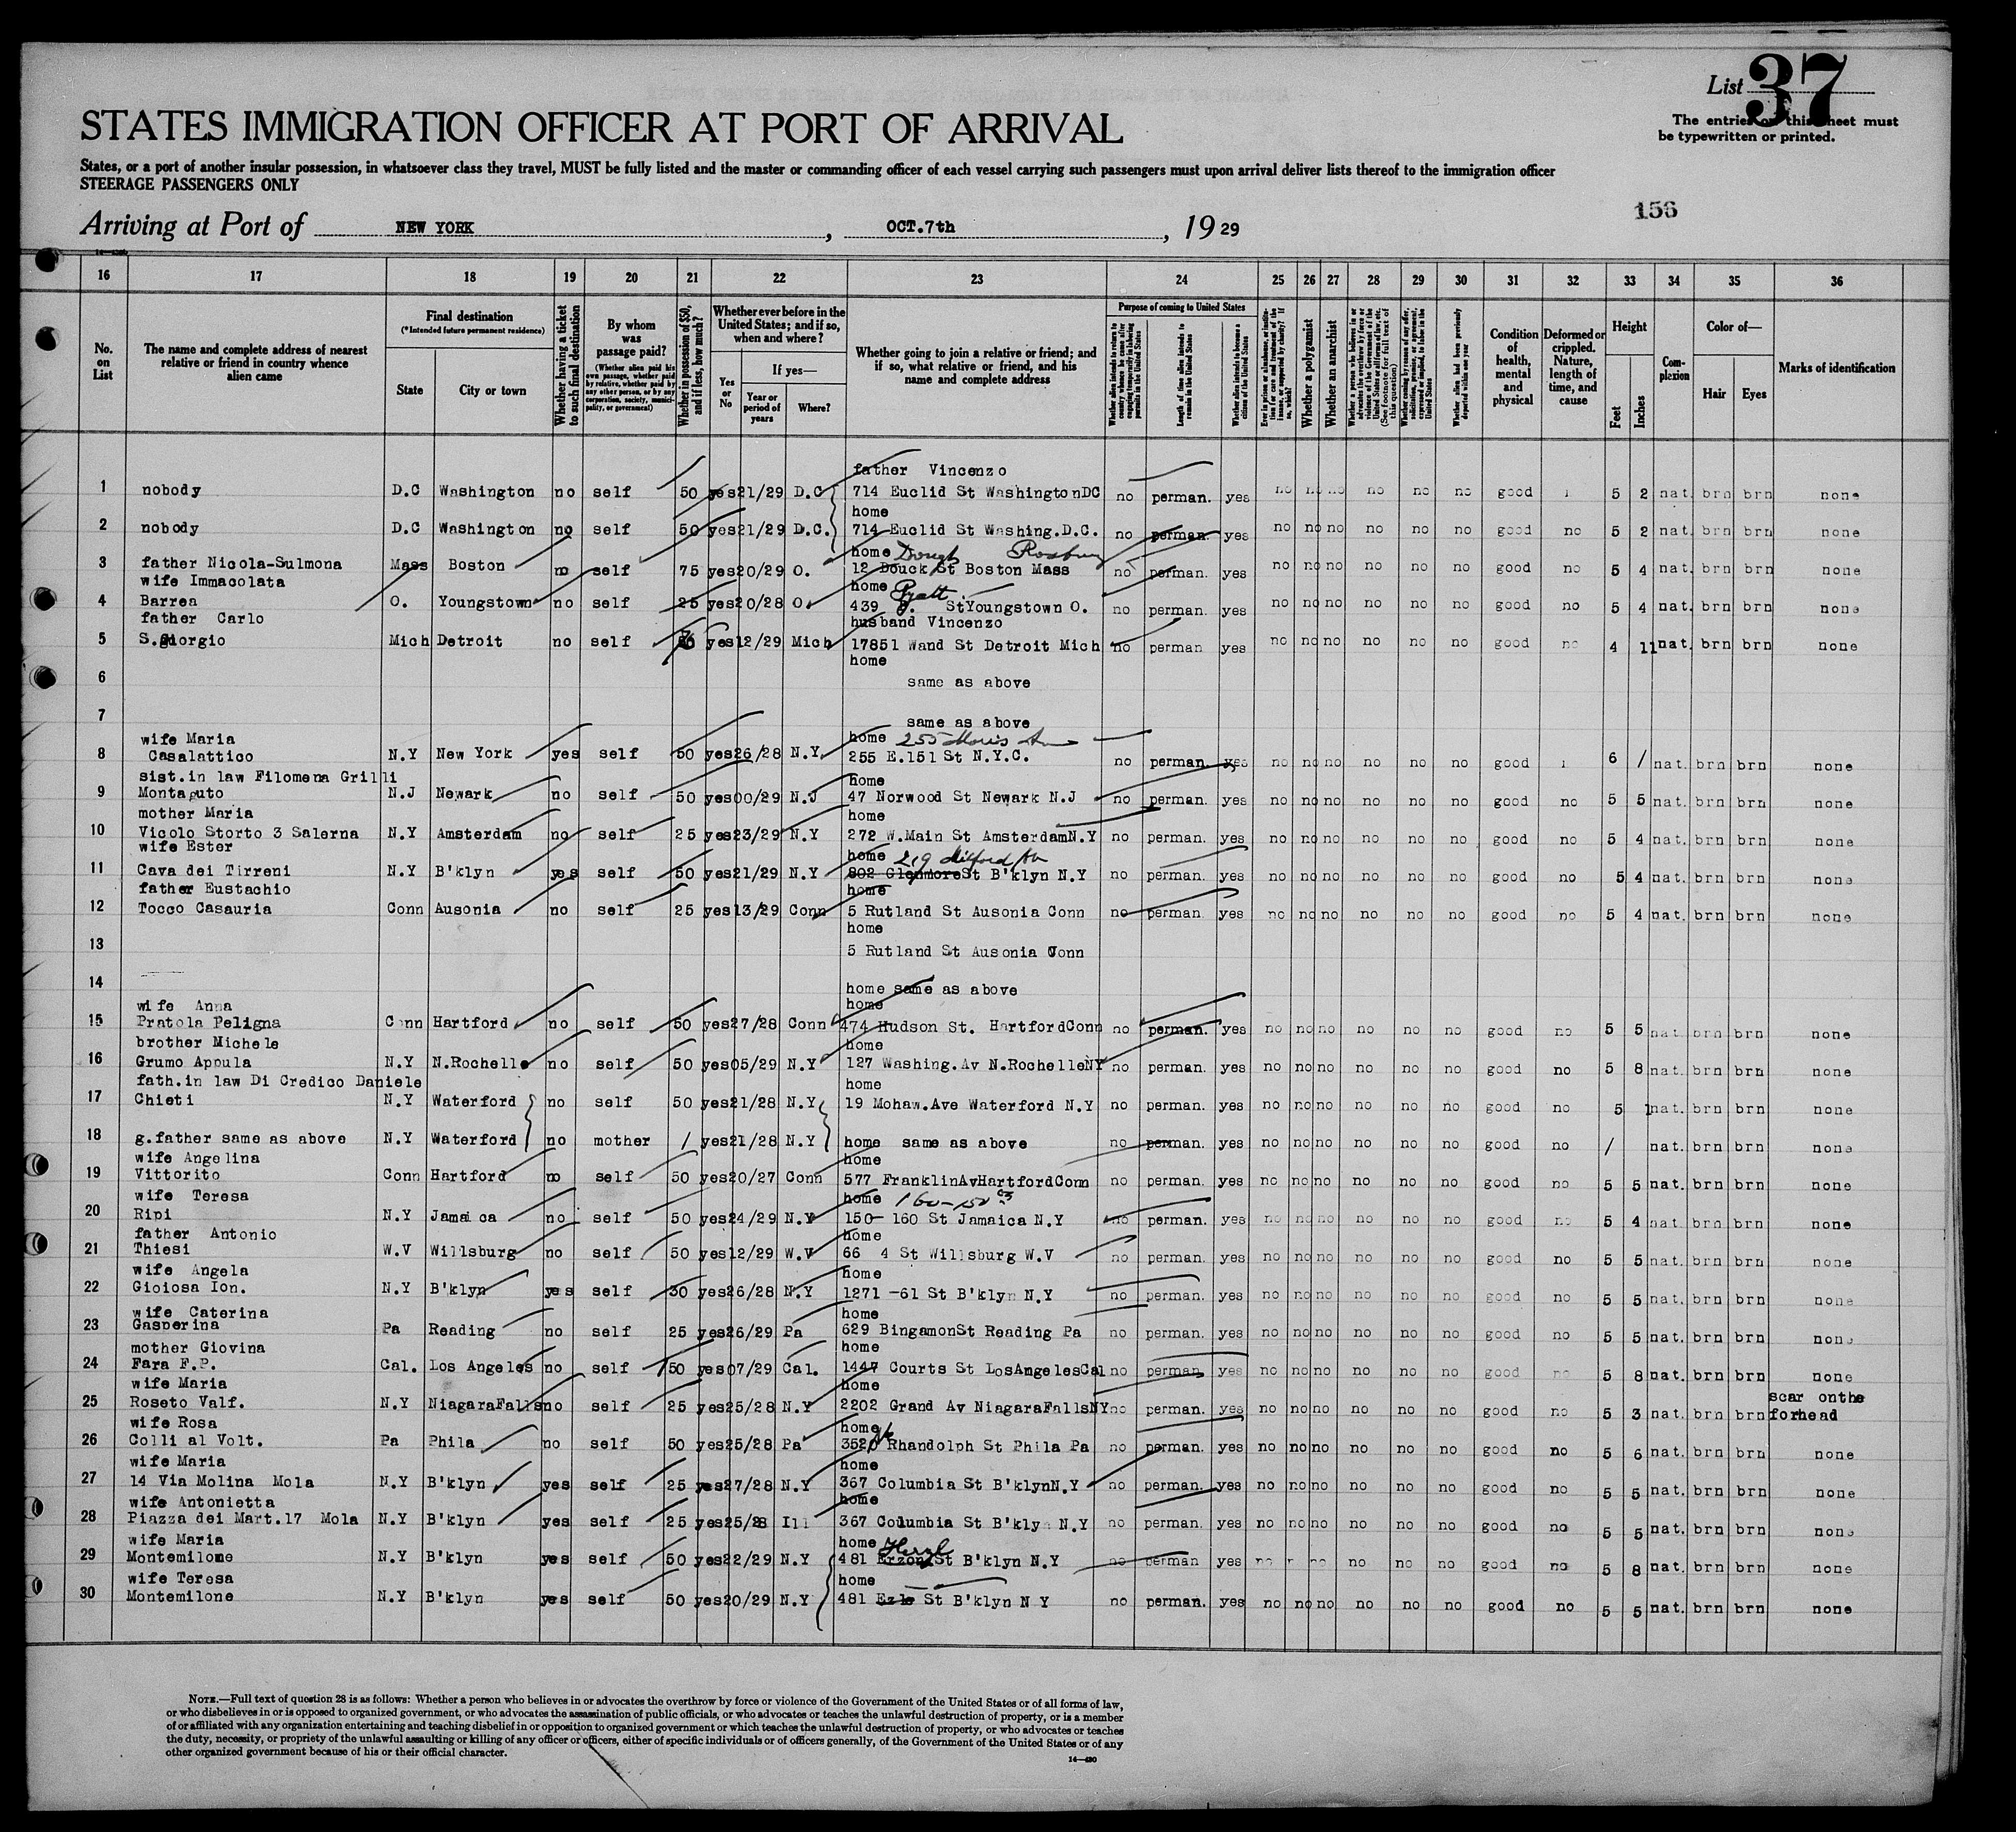 List 37
The entries on this sheet must
be typewritten or printed.
STATES IMMIGRATION OFFICER AT PORT OF ARRIVAL
States, or a port of another insular possession, in whatsoever class they travel, MUST be fully listed and the master or commanding officer of each vessel carrying such passengers must upon arrival deliver lists thereof to the immigration officer
STEERAGE PASSENGERS ONLY
156
Arriving at Port of NEW YORK, OCT.7th, 19 29
16 17 18 19 20 21 22 23 24 25 26 27 28 29 30 31 32 33 34 35 36
No. on List
The name and complete address of nearest relative or friend in country whence alien came
Final destination
(*Intended future permanent residence)
State
City or town
Whether having a ticket to such final destination
By whom was passage paid?
(Whether alien paid his own passage, whether paid by relative, whether paid by any other person, or by any corporation, society, municipality, or government)
Whether in possession of $50, and if less, how much?
Whether ever before in the United States; and if so, when and where?
Yes or No
If yes—
Year or period of years
Where?
Whether going to join a relative or friend; and if so, what relative or friend, and his name and complete address
Purpose of coming to United States
Whether alien intends to return to country whence he came after engaging temporarily in laboring pursuits in the United States
Length of time alien intends to remain in the United States
Whether alien intends to become a citizen of the United States
Ever in prison or almshouse, or institution for care and treatment of the insane, or supported by charity? If so, which?
Whether a polygamist
Whether an anarchist
Whether a person who believes in or advocates the overthrow by force or violence of the Government of the United States or all forms of law, etc. (See footnote for full text of this question)
Whether coming by reason of any offer, solicitation, promise, or agreement, expressed or implied, to labor in the United States
Whether alien had been previously deported within one year
Condition of health, mental and physical
Deformed or crippled. Nature, length of time, and cause
Height
Feet
Inches
Complexion
Color of—
Hair
Eyes
Marks of identification
father Vincenzo
1 nobody D.C Washington no self 50 yes 21/29 D.C 714 Euclid St WashingtonDC no perman. yes no no no no no no good 5 2 nat. brn brn none
home
2 nobody D.C Washington no self 50 yes 21/29 D.C. 714 Euclid St Washing.D.C. no perman. yes no no no no no no good no 5 2 nat. brn brn none
home Roxbury
3 father Nicola-Sulmona Mass Boston no self 75 yes 20/29 O. 12 Douck St Boston Mass no perman. yes no no no no no no good no 5 4 nat. brn brn none
wife Immacolata home Pyatt
4 Barrea O. Youngstown no self 25 yes 20/28 O. 439 StYoungstown O. no perman. yes no no no no no no good no 5 4 nat. brn brn none
father Carlo husband Vincenzo
5 S.giorgio Mich Detroit no self yes 12/29 Mich 17851 Wand St Detroit Mich no perman yes no no no no no no good no 4 11 nat. brn brn none
home
6 same as above
7 same as above
wife Maria home 255 Moris Av
8 Casalattico N.Y New York yes self 50 yes 26/28 N.Y. 255 E.151 St N.Y.C. no perman. yes no no no no no no good 6 / nat. brn brn none
sist.in law Filomena Grilli home
9 Montaguto N.J Newark no self 50 yes 00/29 N.J 47 Norwood St Newark N.J no perman. yes no no no no no no good no 5 5 nat. brn brn none
mother Maria home
10 Vicolo Storto 3 Salerna N.Y Amsterdam no self 25 yes 23/29 N.Y 272 W.Main St AmsterdamN.Y no perman. yes no no no no no no good no 5 4 nat. brn brn none
wife Ester home 219 Milford Av
11 Cava dei Tirreni N.Y B'klyn yes self 50 yes 21/29 N.Y 802 GlenmoreSt B'klyn N.Y no perman. yes no no no no no no good no 5 4 nat. brn brn none
father Eustachio home
12 Tocco Casauria Conn Ausonia no self 25 yes 13/29 Conn 5 Rutland St Ausonia Conn no perman. yes no no no no no no good no 5 4 nat. brn brn none
home
13 5 Rutland St Ausonia Conn
14 home same as above
wife Anna home
15 Pratola Peligna Conn Hartford no self 50 yes 27/28 Conn 474 Hudson St. HartfordConn no perman. yes no no no no no no good no 5 5 nat. brn brn none
brother Michele home
16 Grumo Appula N.Y N.Rochelle no self 50 yes 05/29 N.Y 127 Washing.Av N.RochelleNY no perman. yes no no no no no no good no 5 8 nat. brn brn none
fath.in law Di Credico Daniele home
17 Chieti N.Y Waterford no self 50 yes 21/28 N.Y 19 Mohaw.Ave Waterford N.Y no perman. yes no no no no no no good no 5 1 nat. brn brn none
18 g.father same as above N.Y Waterford no mother / yes 21/28 N.Y home same as above no perman. yes no no no no no no good no / nat. brn brn none
wife Angelina home
19 Vittorito Conn Hartford no self 50 yes 20/27 Conn 577 FranklinAvHartfordConn no perman. yes no no no no no no good no 5 5 nat. brn brn none
wife Teresa home 160-150
20 Ripi N.Y Jamaica no self 50 yes 24/29 N.Y 150- 160 St Jamaica N.Y no perman. yes no no no no no no good no 5 4 nat. brn brn none
father Antonio home
21 Thiesi W.V Willsburg no self 50 yes 12/29 W.V 66 4 St Willsburg W.V no perman. yes no no no no no no good no 5 5 nat. brn brn none
wife Angela home
22 Gioiosa Ion. N.Y B'klyn yes self 30 yes 26/28 N.Y 1271 -61 St B'klyn N.Y no perman. yes no no no no no no good no 5 5 nat. brn brn none
wife Caterina home
23 Gasperina Pa Reading no self 25 yes 26/29 Pa 629 BingamonSt Reading Pa no perman. yes no no no no no no good no 5 5 nat. brn brn none
mother Giovina home
24 Fara F.P. Cal. Los Angeles no self 50 yes 07/29 Cal. 1447 Courts St LosAngelesCal no perman. yes no no no no no no good no 5 8 nat. brn brn none
wife Maria home scar onthe
25 Roseto Valf. N.Y NiagaraFalls no self 25 yes 25/28 N.Y 2202 Grand Av NiagaraFallsNY no perman. yes no no no no no no good no 5 3 nat. brn brn forhead
wife Rosa home
26 Colli al Volt. Pa Phila no self 50 yes 25/28 Pa 3520 Rhandolph St Phila Pa no perman. yes no no no no no no good no 5 6 nat. brn brn none
wife Maria home
27 14 Via Molina Mola N.Y B'klyn yes self 25 yes 27/28 N.Y 367 Columbia St B'klynN.Y no perman. yes no no no no no no good no 5 5 nat. brn brn none
wife Antonietta home
28 Piazza dei Mart.17 Mola N.Y B'klyn yes self 25 yes 25/28 Ill 367 Columbia St B'klyn N.Y no perman. yes no no no no no no good no 5 5 nat. brn brn none
wife Maria home Herzl
29 Montemilone N.Y B'klyn yes self 50 yes 22/29 N.Y 481 Erzon St B'klyn N.Y no perman yes no no no no no good no 5 8 nat. brn brn none
wife Teresa home
30 Montemilone N.Y B'klyn yes self 50 yes 20/29 N.Y 481 Ezle St B'klyn N Y no perman. yes no no no no no no good no 5 5 nat. brn brn none
NOTE.—Full text of question 28 is as follows: Whether a person who believes in or advocates the overthrow by force or violence of the Government of the United States or of all forms of law,
or who disbelieves in or is opposed to organized government, or who advocates the assassination of public officials, or who advocates or teaches the unlawful destruction of property, or is a member
of or affiliated with any organization entertaining and teaching disbelief in or opposition to organized government or which teaches the unlawful destruction of property, or who advocates or teaches
the duty, necessity, or propriety of the unlawful assaulting or killing of any officer or officers, either of specific individuals or of officers generally, of the Government of the United States or of any
other organized government because of his or their official character.
14—430